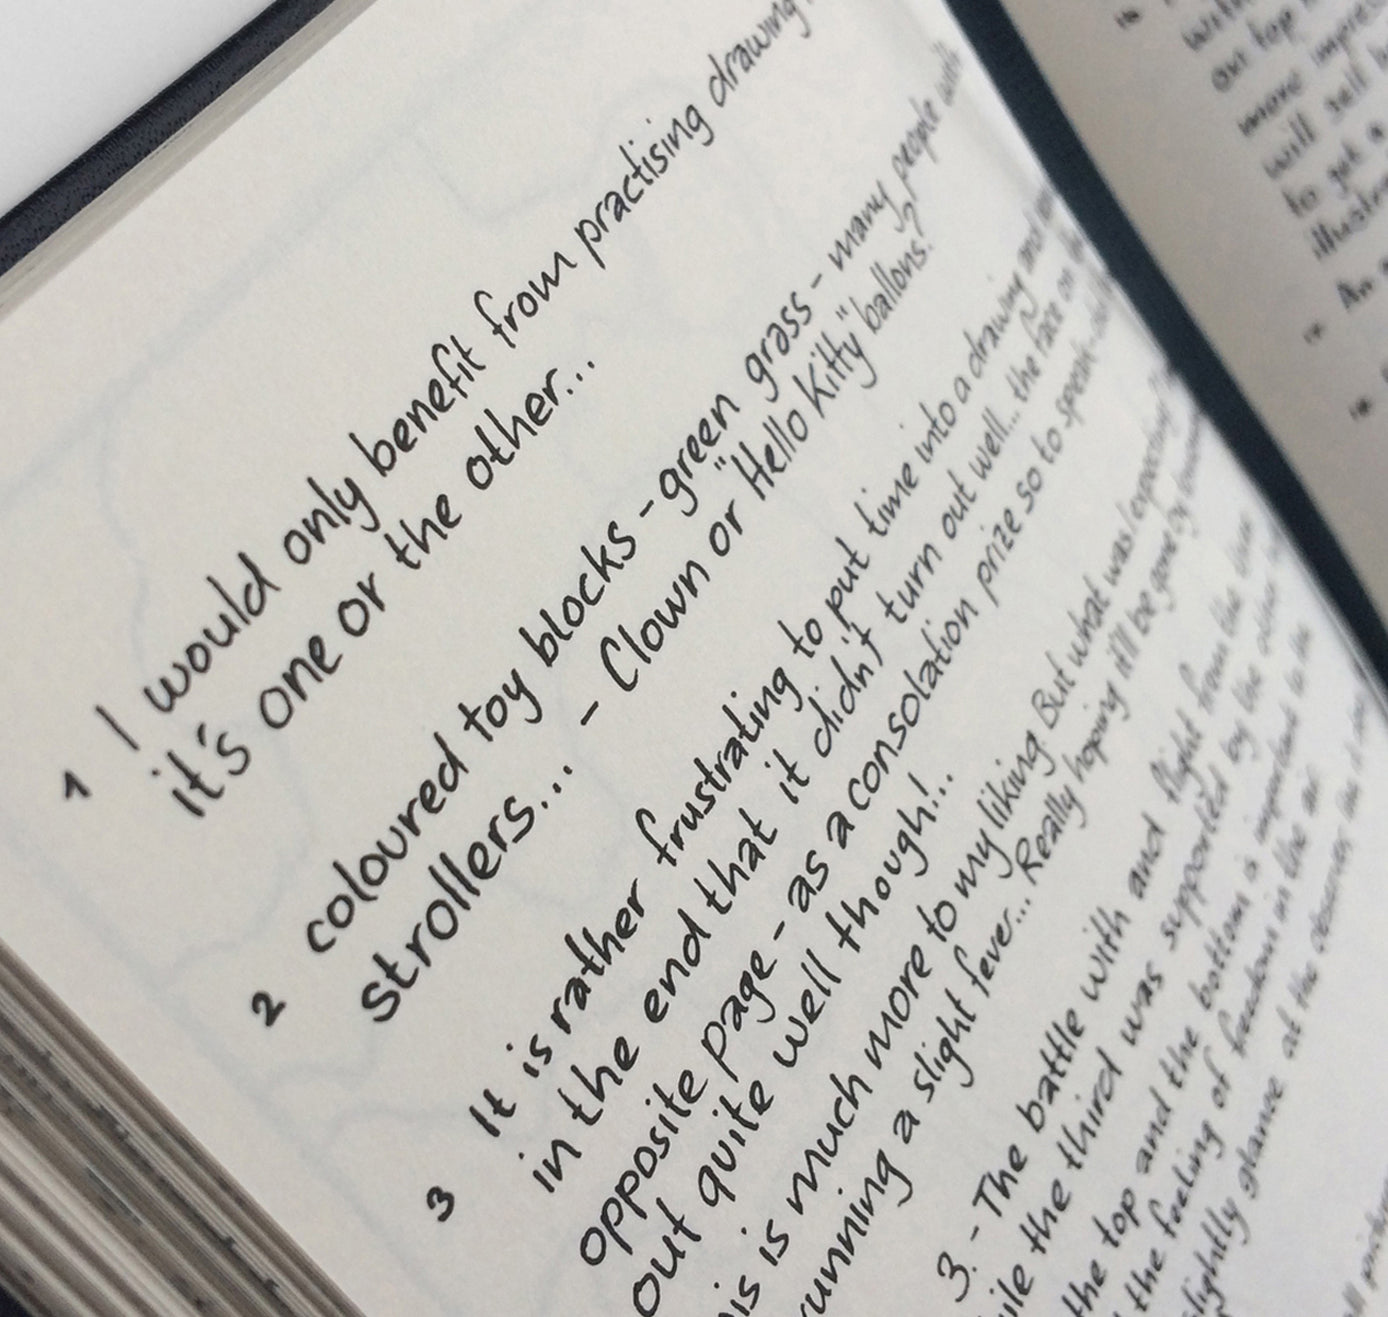 1 I would only benefit from practising drawing
it's one or the other...
2 coloured toy blocks - green grass - many people with
strollers... - Clown or "Hello Kitty" ballons?
3 It is rather frustrating to put time into a drawing and
in the end that it didn't turn out well... the face on the
opposite page - as a consolation prize so to speak
out quite well though!..
is much more to my liking But what was I expecting?
running a slight fever... Really hoping it'll be gone by
3. - The battle with and flight from the
the third was supported by the other
the top and the bottom is important to the
the feeling of freedom in the air
slightly glance at the observer, like it
will
our top
more
will sell
to get a
An